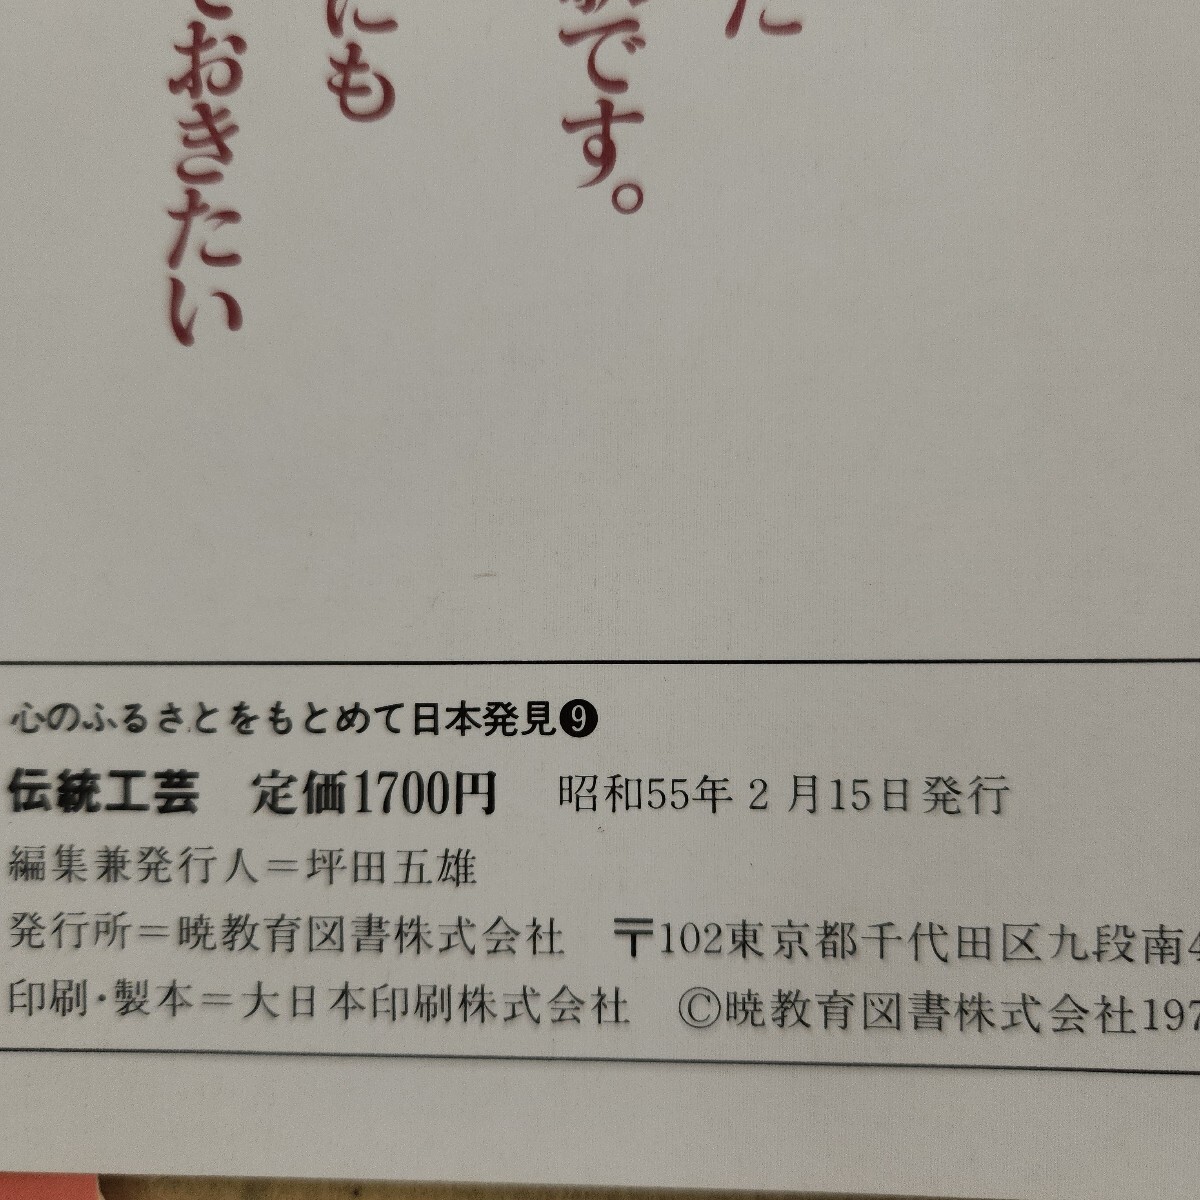 た
です。
にも
おきたい
心のふるさとをもとめて日本発見❾
伝統工芸　定価1700円　昭和55年2月15日発行
編集兼発行人＝坪田五雄
発行所＝暁教育図書株式会社　〒102東京都千代田区九段南4
印刷・製本＝大日本印刷株式会社　Ⓒ暁教育図書株式会社197